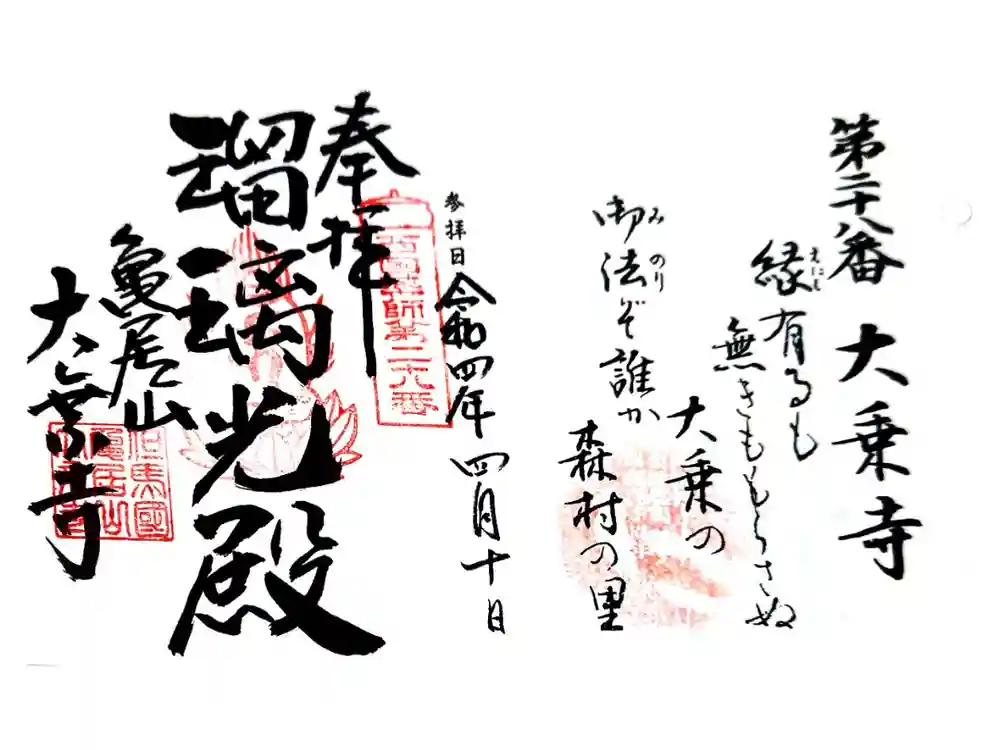 第二十八番 大乗寺
縁有るも
えにし
無きももらさぬ
大乗の
御法ぞ誰か
みのり
森村の里
参拝日 令和四年 四月十日
奉拝
西国薬師第二十八番
瑠璃光殿
亀居山
大乗寺
但馬国
亀居山